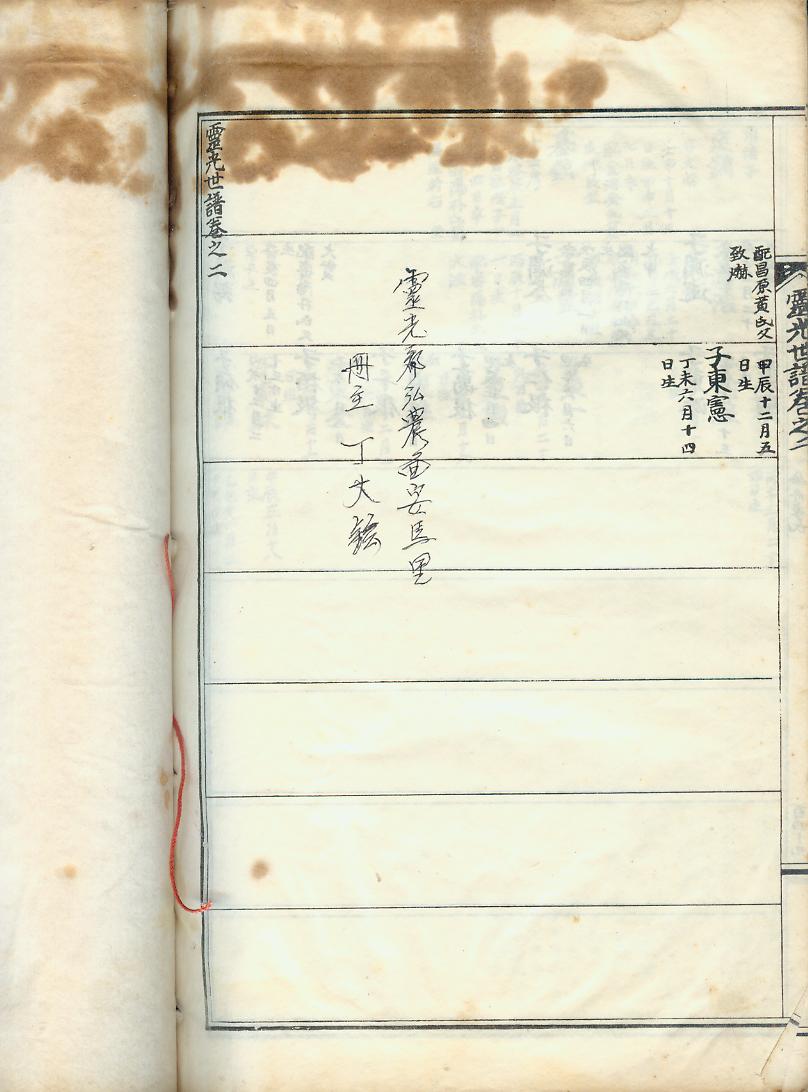 靈光世譜卷之二
配昌原黃氏父
致爀
甲辰十二月五
日生
子東憲
丁未六月十四
日生
靈光郡弘農面安馬里
冊主 丁大鉉
靈光世譜卷之二